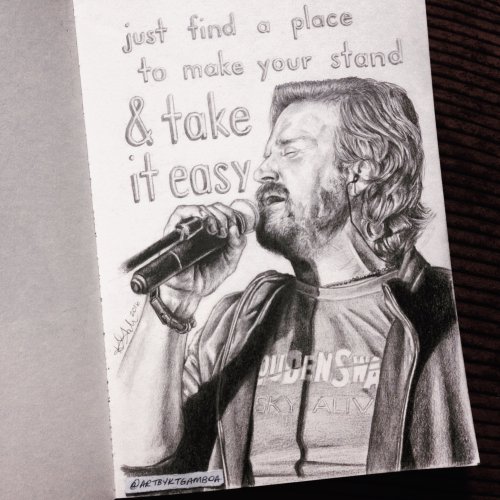 just find a place
to make your stand
& take
it easy
2016
OUDENSWA
SKY ALIV
@ARTBYKTGAMBOA